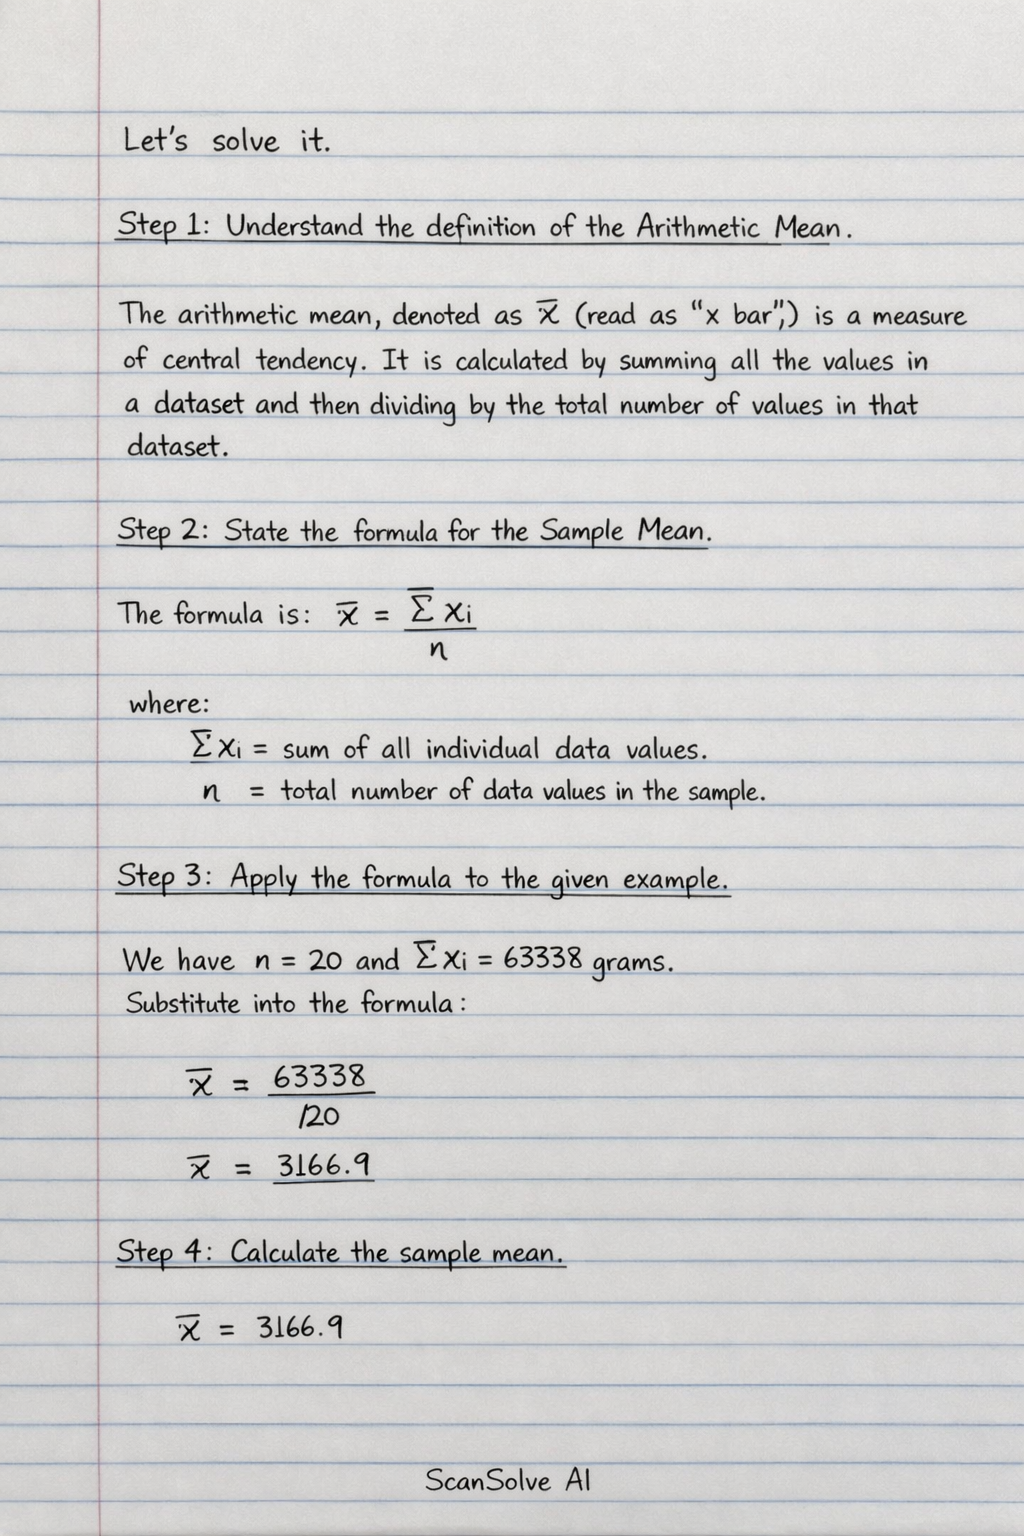 Let's solve it.
Step 1: Understand the definition of the Arithmetic Mean.
The arithmetic mean, denoted as x̅ (read as “x bar”,) is a measure
of central tendency. It is calculated by summing all the values in
a dataset and then dividing by the total number of values in that
dataset.
Step 2: State the formula for the Sample Mean.
The formula is: x̅ = Σ xi
n
where:
Σxi = sum of all individual data values.
n = total number of data values in the sample.
Step 3: Apply the formula to the given example.
We have n = 20 and Σxi = 63338 grams.
Substitute into the formula:
x̅ = 63338
/20
x̅ = 3166.9
Step 4: Calculate the sample mean.
x̅ = 3166.9
ScanSolve AI